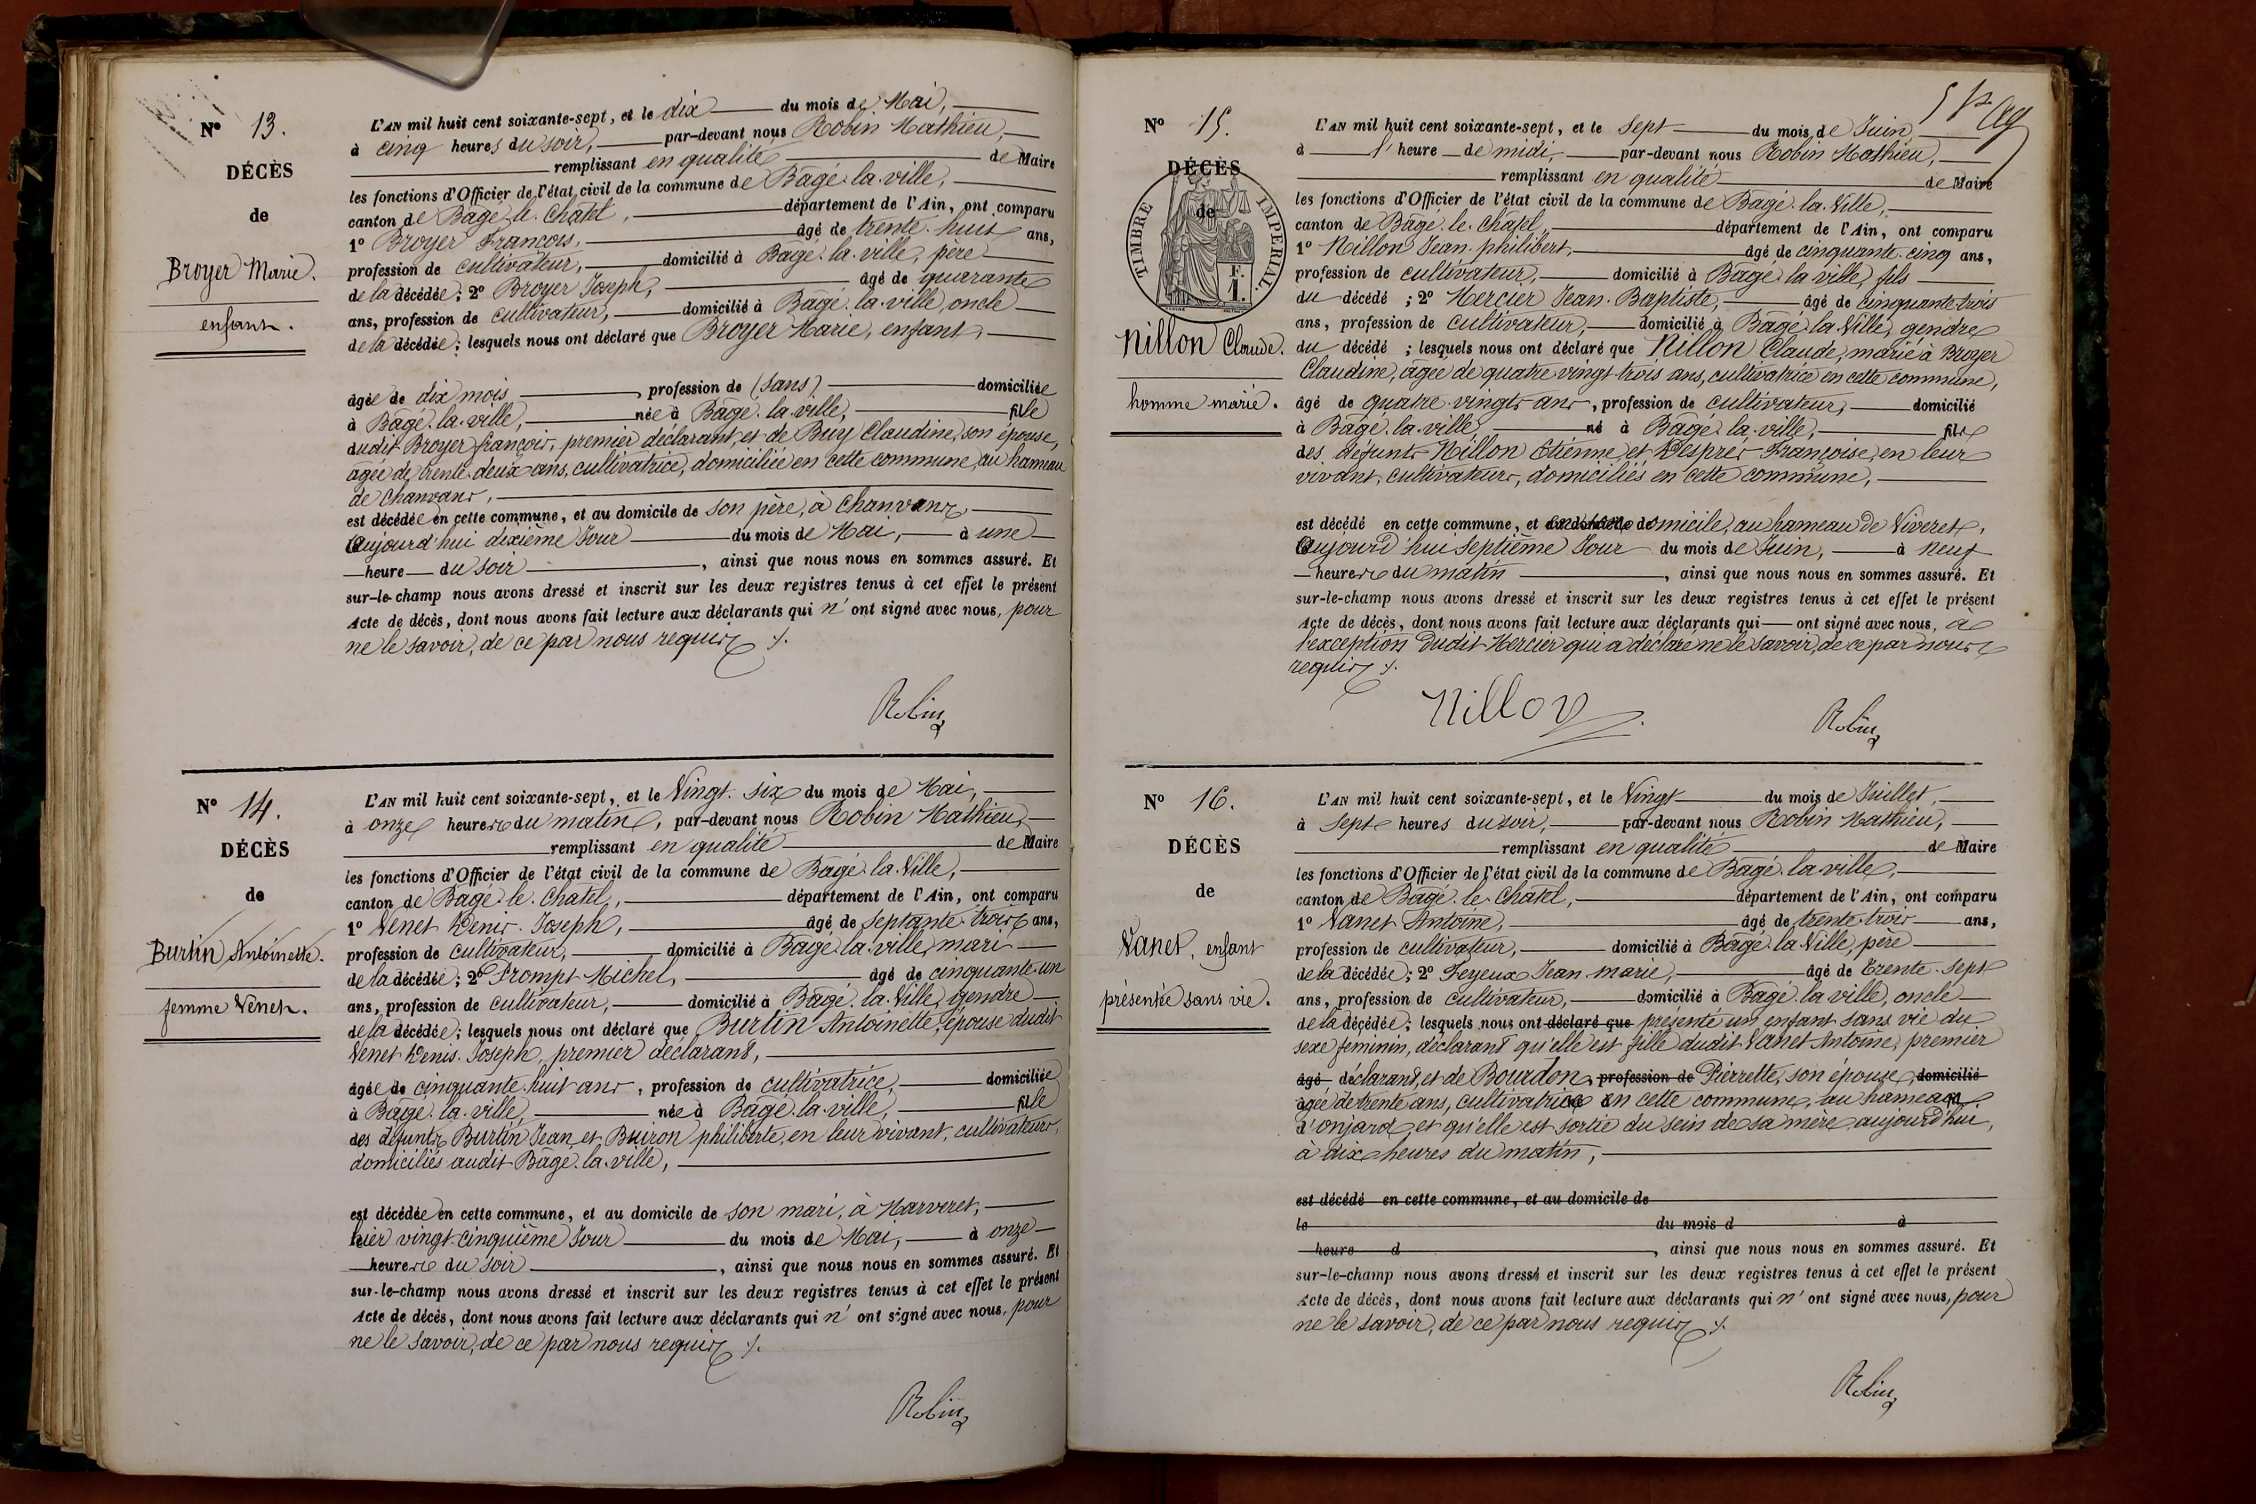 N° 13.
DÉCÈS
de
Broyer Marie.
enfant.
L'AN mil huit cent soixante-sept, et le dix du mois de Mai,
à cinq heures du soir, par-devant nous Robin Mathieu,
remplissant en qualité de Maire
les fonctions d'Officier de l'état civil de la commune de Bâgé-la-ville,
canton de Bâgé-le-Châtel, département de l'Ain, ont comparu
1° Broyer François, âgé de trente-huit ans,
profession de cultivateur, domicilié à Bâgé-la-ville, père
de la décédée; 2° Broyer Joseph, âgé de quarante
ans, profession de cultivateur, domicilié à Bâgé-la-ville, oncle
de la décédée; lesquels nous ont déclaré que Broyer Marie, enfant,
âgée de dix mois, profession de (sans) domiciliée
à Bâgé-la-ville, née à Bâgé-la-ville, fille
dudit Broyer françois, premier déclarant, et de Bury Claudine, son épouse,
âgée de trente-deux ans, cultivatrice, domiciliée en cette commune, au hameau
de Chanvans,
est décédée en cette commune, et au domicile de son père, à Chanvans
Aujourd'hui dixième Jour du mois de Mai, à une
heure du soir, ainsi que nous nous en sommes assuré. Et
sur-le-champ nous avons dressé et inscrit sur les deux registres tenus à cet effet le présent
Acte de décès, dont nous avons fait lecture aux déclarants qui n'ont signé avec nous, pour
ne le savoir, de ce par nous requis ./.
Robin
N° 14.
DÉCÈS
de
Burtin Antoinette.
femme Venet.
L'AN mil huit cent soixante-sept, et le Vingt-six du mois de Mai,
à onze heures du matin, par-devant nous Robin Mathieu,
remplissant en qualité de Maire
les fonctions d'Officier de l'état civil de la commune de Bâgé-la-Ville,
canton de Bâgé-le-Châtel, département de l'Ain, ont comparu
1° Venet Denis-Joseph, âgé de septante-trois ans,
profession de cultivateur, domicilié à Bâgé-la-ville, mari
de la décédée; 2° Prompt Michel, âgé de cinquante-un
ans, profession de cultivateur, domicilié à Bâgé-la-Ville, gendre
de la décédée; lesquels nous ont déclaré que Burtin Antoinette, épouse dudit
Venet Denis-Joseph, premier déclarant,
âgée de cinquante-huit ans, profession de cultivatrice, domiciliée
à Bâgé-la-ville, née à Bâgé-la-ville, fille
des défunts Burtin Jean, et Buiron philiberte, en leur vivant, cultivateurs,
domiciliés audit Bâgé-la-ville,
est décédée en cette commune, et au domicile de son mari, à Marveret,
hier vingt-cinquième Jour du mois de Mai, à onze
heures du soir, ainsi que nous nous en sommes assuré. Et
sur-le-champ nous avons dressé et inscrit sur les deux registres tenus à cet effet le présent
Acte de décès, dont nous avons fait lecture aux déclarants qui n'ont signé avec nous, pour
ne le savoir, de ce par nous requis ./.
Robin
N° 15.
DÉCÈS
de
TIMBRE IMPÉRIAL.
F.
1.
Nillon Claude.
homme marié.
L'AN mil huit cent soixante-sept, et le sept du mois de Juin
à l'heure de midi, par-devant nous Robin Mathieu,
remplissant en qualité de Maire
les fonctions d'Officier de l'état civil de la commune de Bâgé-la-Ville,
canton de Bâgé-le-Châtel, département de l'Ain, ont comparu
1° Nillon Jean-philibert, âgé de cinquante-cinq ans,
profession de cultivateur, domicilié à Bâgé-la-ville, fils
du décédé; 2° Mercier Jean-Baptiste, âgé de cinquante-trois
ans, profession de cultivateur, domicilié à Bâgé-la-Ville, gendre
du décédé; lesquels nous ont déclaré que Nillon Claude, marié à Broyer
Claudine, âgée de quatre-vingt-trois ans, cultivatrice en cette commune,
âgé de quatre-vingts ans, profession de cultivateur, domicilié
à Bâgé-la-ville, né à Bâgé-la-ville, fils
des défunts Nillon Etienne, et Desprès Françoise, en leur
vivant, cultivateurs, domiciliés en cette commune,
est décédé en cette commune, et domicile, au hameau de Viveret,
Aujourd'hui Septième Jour du mois de Juin, à neuf
heures du matin, ainsi que nous nous en sommes assuré. Et
sur-le-champ nous avons dressé et inscrit sur les deux registres tenus à cet effet le présent
Acte de décès, dont nous avons fait lecture aux déclarants qui ont signé avec nous, à
l'exception dudit Mercier qui a déclaré ne le savoir, de ce par nous
requis ./.
Nillon Robin
N° 16.
DÉCÈS
de
Vanet, enfant
présenté sans vie.
L'AN mil huit cent soixante-sept, et le Vingt du mois de Juillet,
à sept heures du soir, par-devant nous Robin Mathieu,
remplissant en qualité de Maire
les fonctions d'Officier de l'état civil de la commune de Bâgé-la-ville,
canton de Bâgé-le-Châtel, département de l'Ain, ont comparu
1° Vanet Antoine, âgé de trente-trois ans,
profession de cultivateur, domicilié à Bâgé-la-Ville, père
de la décédée; 2° Feyeux Jean-marie, âgé de trente-sept
ans, profession de cultivateur, domicilié à Bâgé-la-ville, oncle
de la décédée; lesquels nous ont déclaré que présenté un enfant sans vie du
sexe féminin, déclarant qu'elle est fille dudit Vanet Antoine, premier
âgé déclarant, et de Bourdon, profession de Pierrette, son épouse, domicilié
âgée de trente ans, cultivatrice en cette commune, au hameau
d'onjard, et qu'elle est sortie du sein de sa mère aujourd'hui,
à dix heures du matin,
est décédé en cette commune, et au domicile de
le du mois d à
heure d, ainsi que nous nous en sommes assuré. Et
sur-le-champ nous avons dressé et inscrit sur les deux registres tenus à cet effet le présent
Acte de décès, dont nous avons fait lecture aux déclarants qui n'ont signé avec nous, pour
ne le savoir, de ce par nous requis ./.
Robin